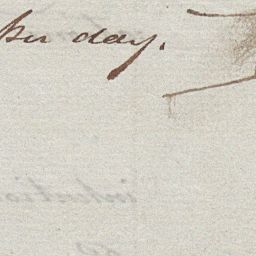 per day.